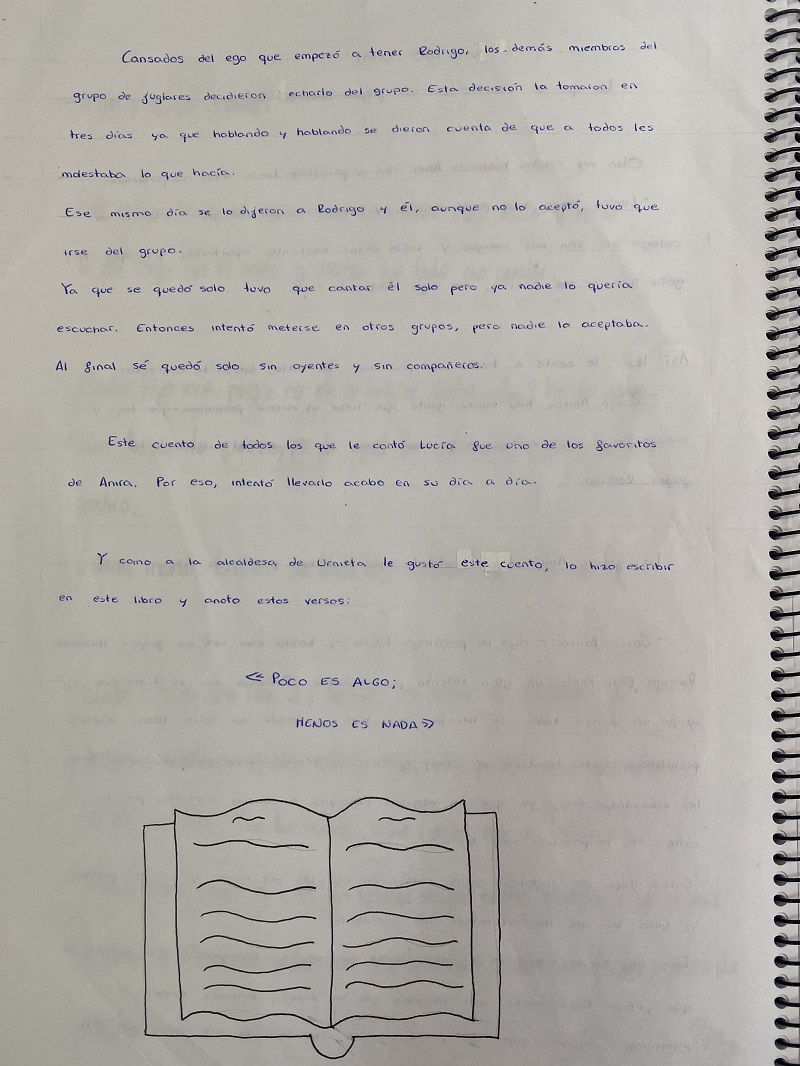 Cansados del ego que empezó a tener Rodrigo, los demás miembros del
grupo de juglares decidieron echarlo del grupo. Esta decisión la tomaron en
tres días ya que hablando y hablando se dieron cuenta de que a todos les
molestaba lo que hacía.
Ese mismo día se lo dijeron a Rodrigo y él, aunque no lo aceptó, tuvo que
irse del grupo.
Ya que se quedó solo tuvo que cantar él solo pero ya nadie lo quería
escuchar. Entonces intentó meterse en otros grupos, pero nadie lo aceptaba.
Al final sé quedó solo sin oyentes y sin compañeros.
Este cuento de todos los que le contó Lucía fue uno de los favoritos
de Amira. Por eso, intentó llevarlo acabo en su día a día.
Y como a la alcaldesa de Urnieta le gustó este cuento, lo hizo escribir
en este libro y anoto estos versos:
<< POCO ES ALGO;
MENOS ES NADA >>